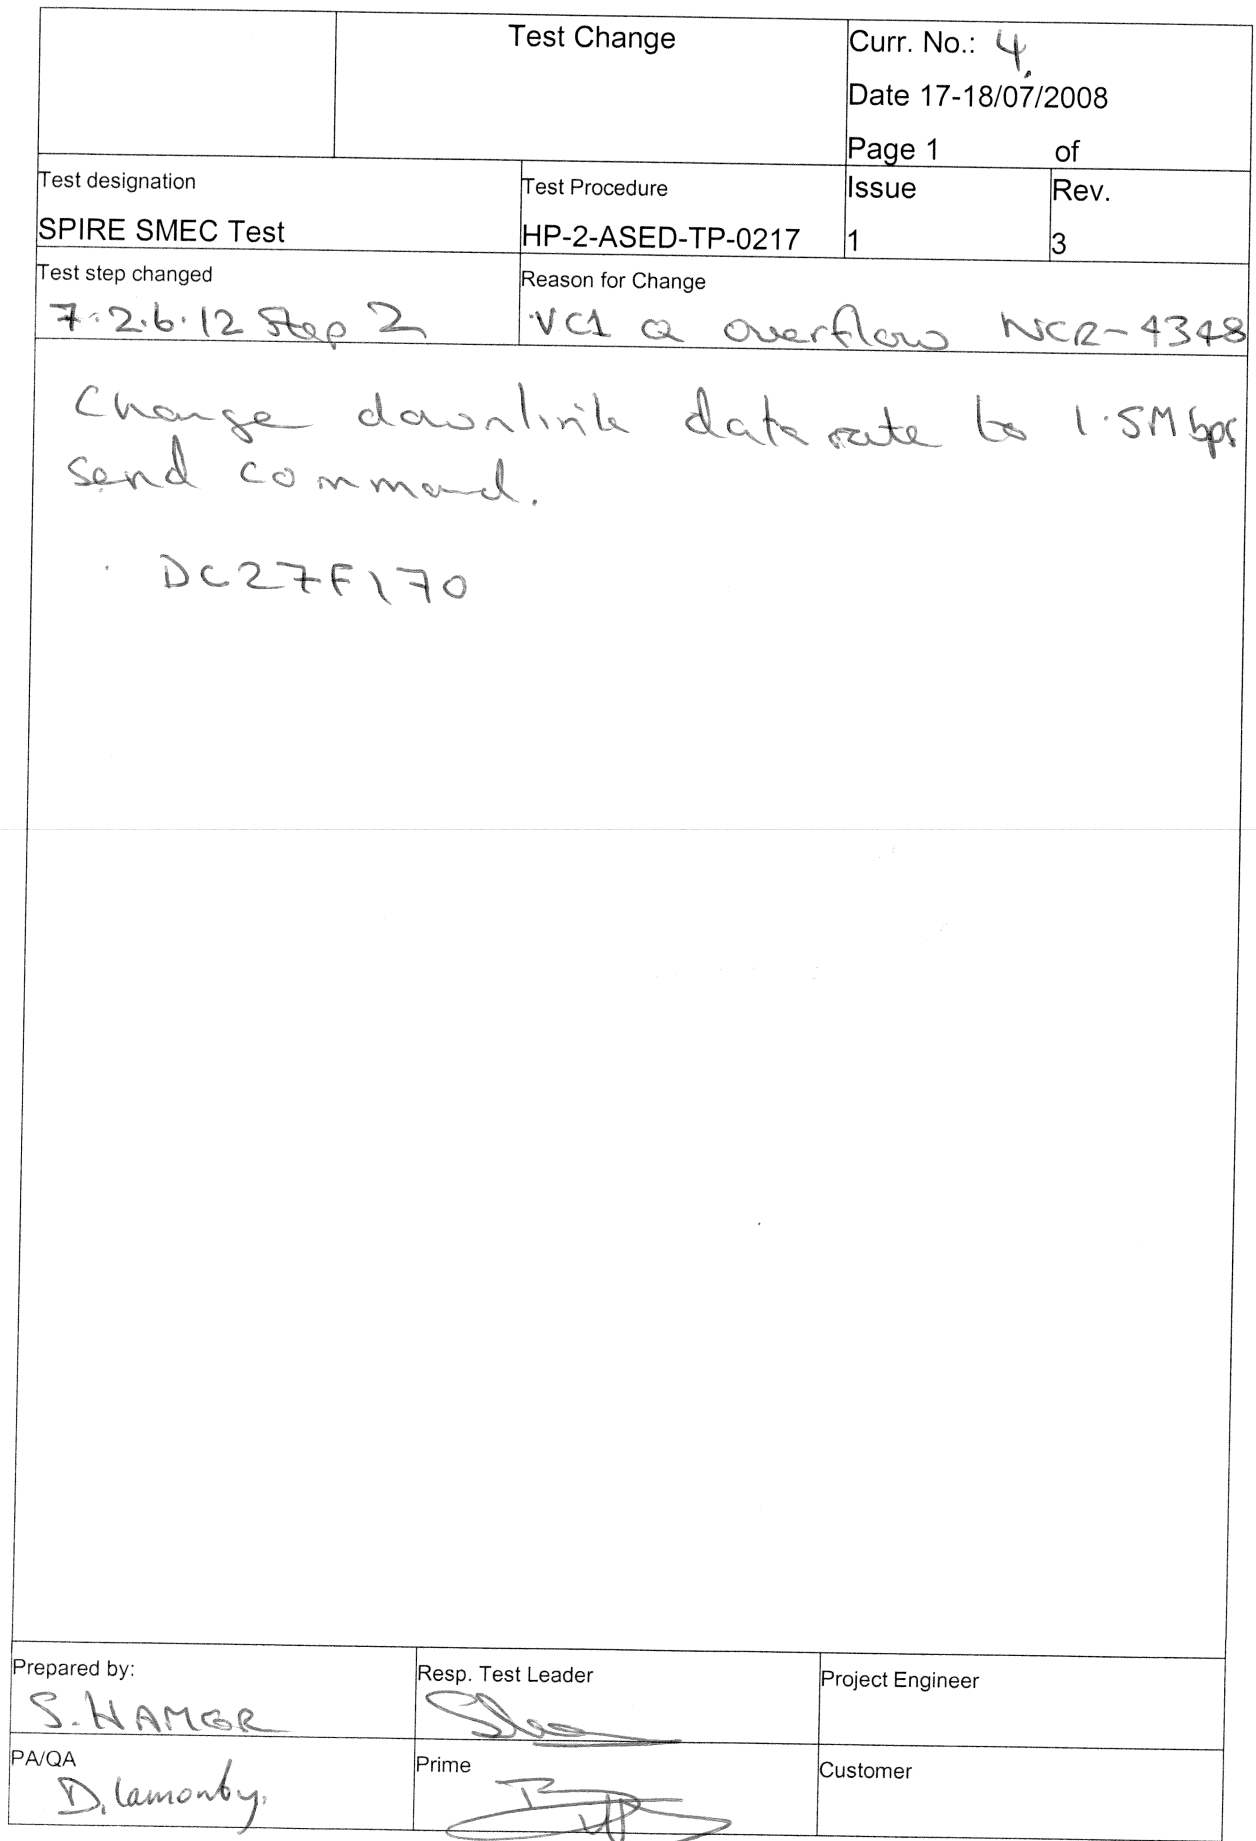 Test Change
Curr. No.: 4.
Date 17-18/07/2008
Page 1 of
Test designation
SPIRE SMEC Test
Test Procedure
HP-2-ASED-TP-0217
Issue
1
Rev.
3
Test step changed
7.2.6.12 Step 2
Reason for Change
VC1 Q overflow NCR-4348
Change downlink data rate to 1.5Mbps
send command.
DC27F170
Prepared by:
S. HAMER
Resp. Test Leader
Project Engineer
PA/QA
D. Lamonby.
Prime
Customer